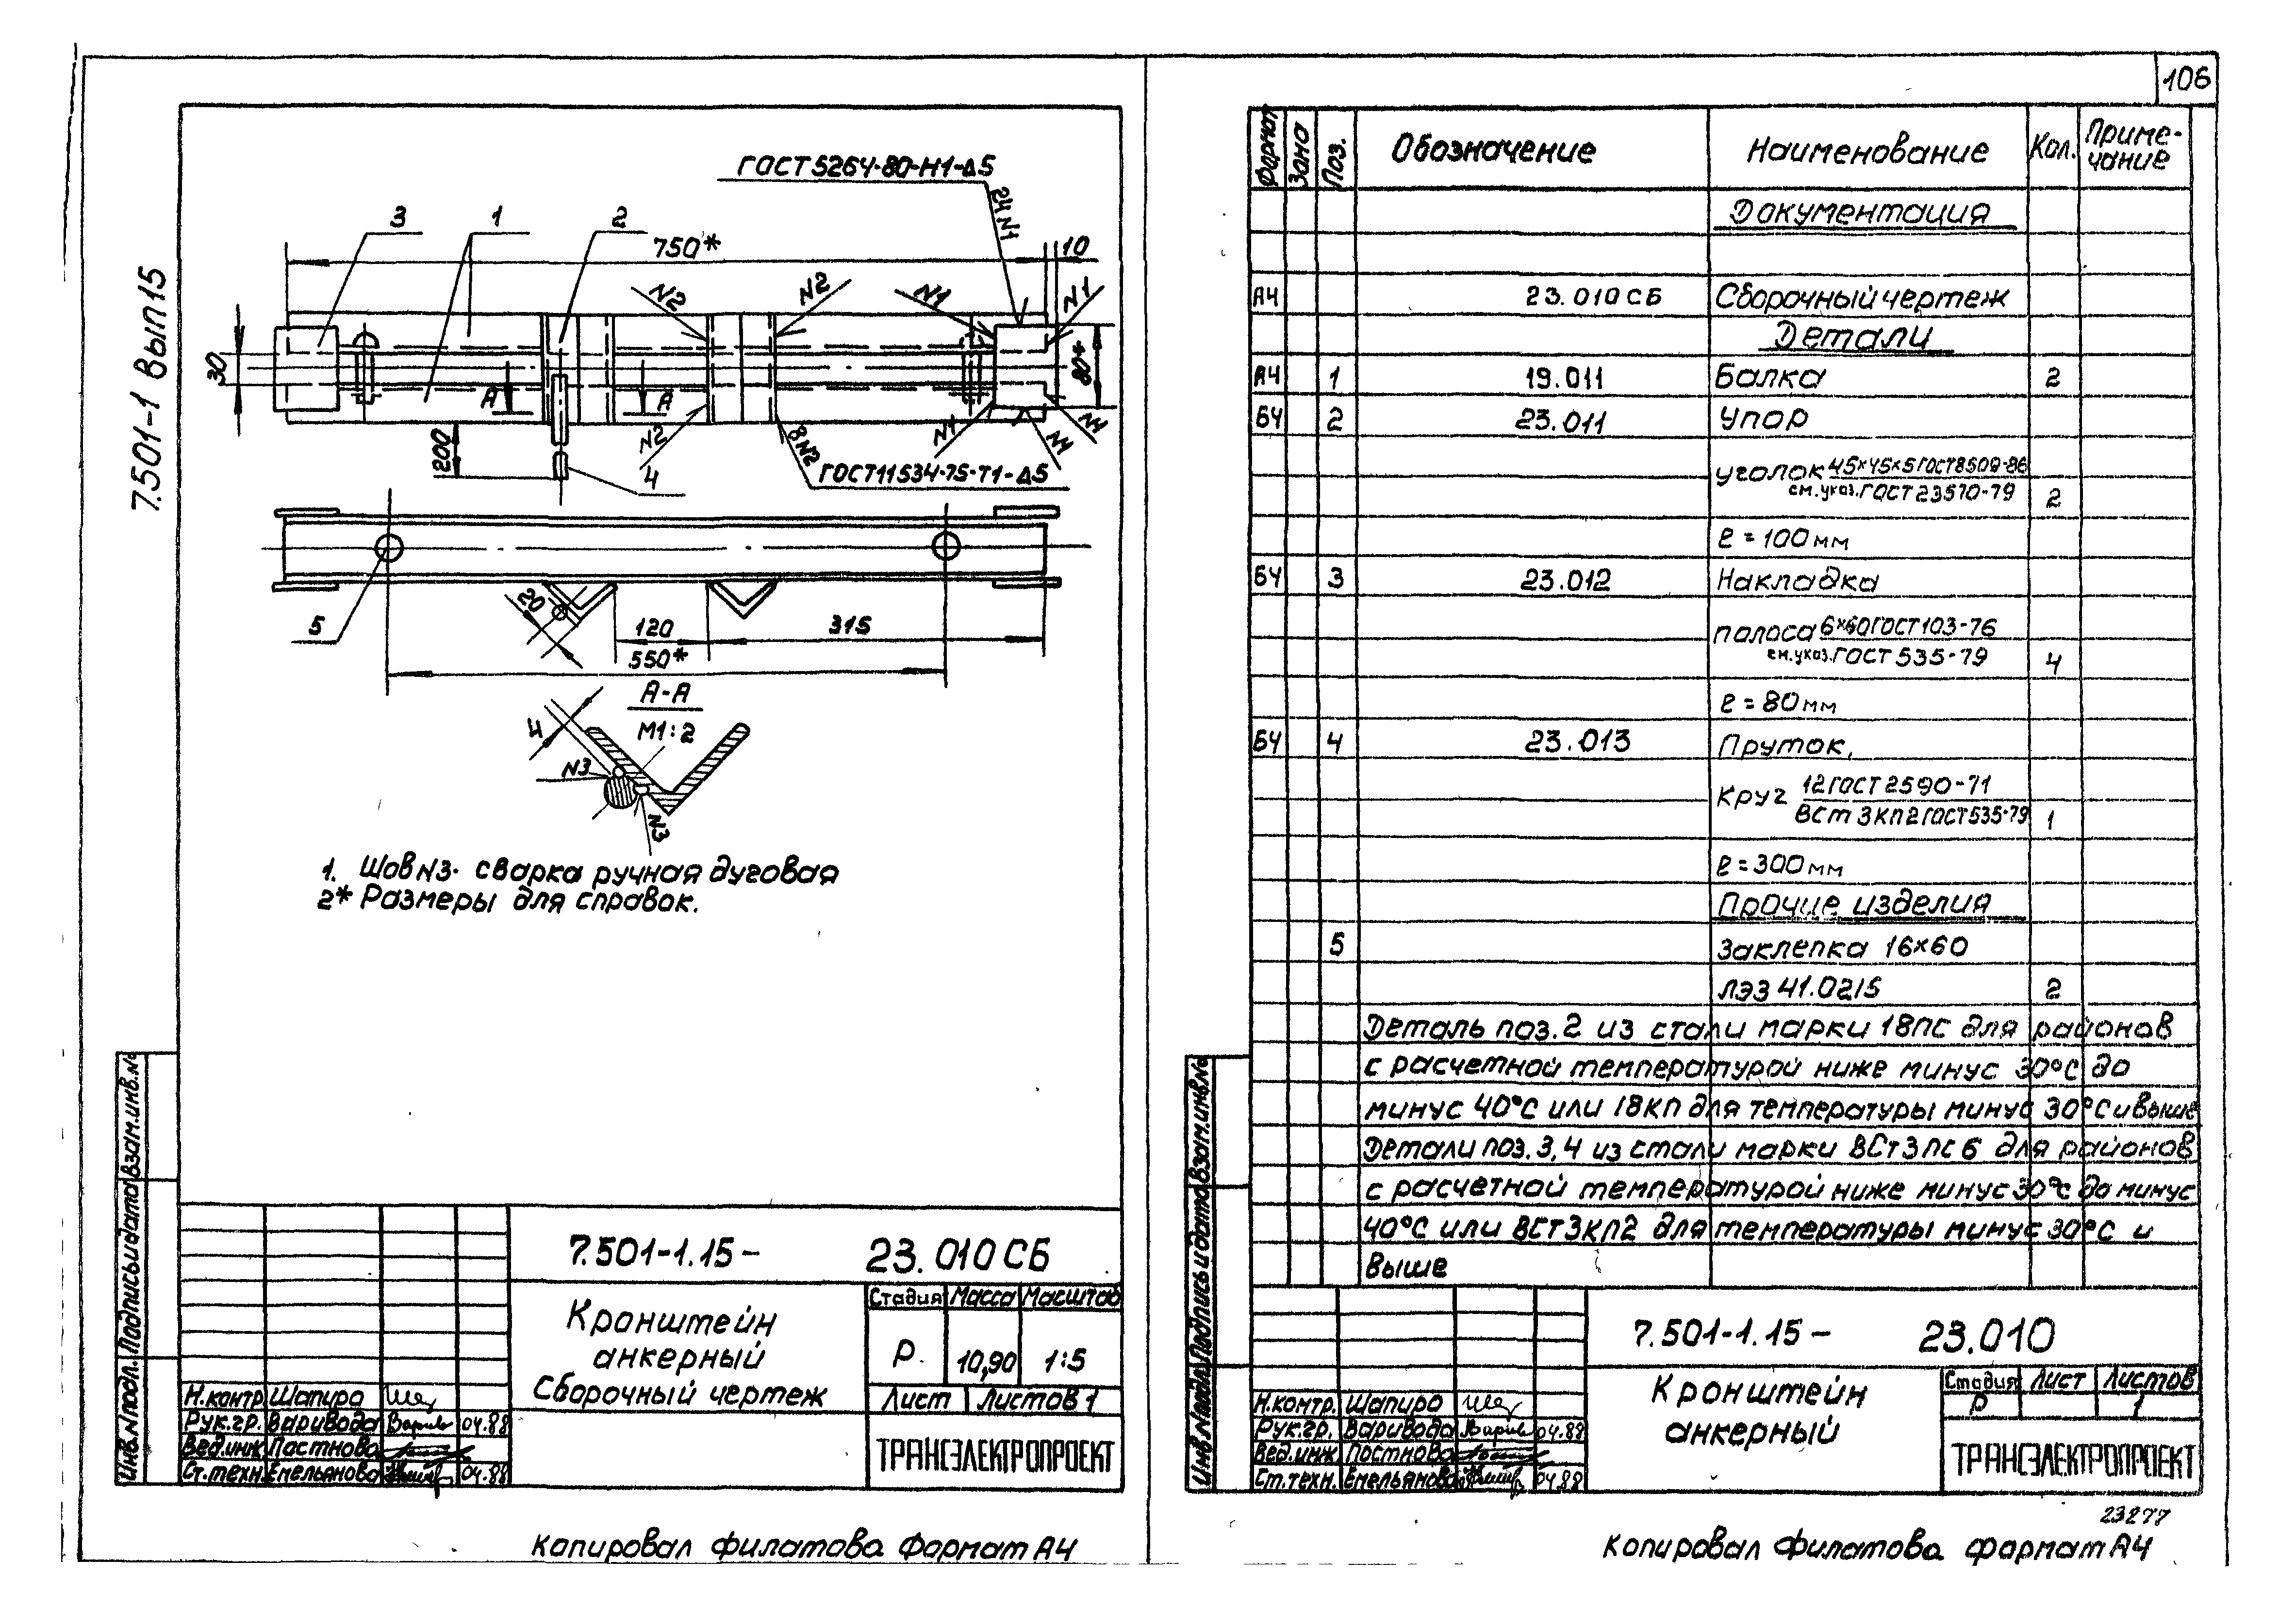 106
7.501-1 Вып15
ГОСТ 5264-80-Н1-Δ5
24 N1
3
1
2
750*
10
N2
N2
N1
N1
30
80*
А
А
200
N2
8 N2
N1
N1
N1
4
ГОСТ 11534-75-Т1-Δ5
20
5
120
315
550*
А-А
М1:2
4
N3
N3
1. Шов N3- сварка ручная дуговая
2* Размеры для справок.
Взам.инв.№
Подпись и дата
Инв.№подл.
7.501-1.15- 23.010СБ
Кронштейн
анкерный
Сборочный чертеж
Стадия Масса Масштаб
Р. 10,90 1:5
Лист Листов 1
ТРАНСЭЛЕКТРОПРОЕКТ
Н.контр. Шапиро
Рук.гр. Варивода 04.88
Вед.инж. Постнова
Ст.техн. Емельянова 04.88
Копировал Филатова Формат А4
Формат Зона Поз. Обозначение Наименование Кол. Примечание
Документация
А4 23.010СБ Сборочный чертеж
Детали
А4 1 19.011 Балка 2
БЧ 2 23.011 Упор
Уголок 45×45×5 ГОСТ 8509-86
см.указ. ГОСТ 23570-79 2
ℓ = 100мм
БЧ 3 23.012 Накладка
полоса 6×60 ГОСТ 103-76
см.указ. ГОСТ 535-79 4
ℓ = 80мм
БЧ 4 23.013 Пруток,
Круг 12 ГОСТ 2590-71
ВСт 3КП2 ГОСТ 535-79 1
ℓ = 300мм
Прочие изделия
5 Заклепка 16×60
ЛЭЗ 41.0215 2
Деталь поз.2 из стали марки 18пс для районов
с расчетной температурой ниже минус 30°С до
минус 40°С или 18кп для температуры минус 30°С и выше
Детали поз.3,4 из стали марки ВСт3пс6 для районов
с расчетной температурой ниже минус 30°С до минус
40°С или ВСТ3КП2 для температуры минус 30°С и
Выше
Взам.инв.№
Подпись и дата
Инв.№подл.
7.501-1.15- 23.010
Кронштейн
анкерный
Стадия Лист Листов
Р 1
ТРАНСЭЛЕКТРОПРОЕКТ
Н.контр. Шапиро
Рук.гр. Варивода 04.88
Вед.инж. Постнова
Ст.техн. Емельянова 04.88
23277
Копировал Филатова формат А4